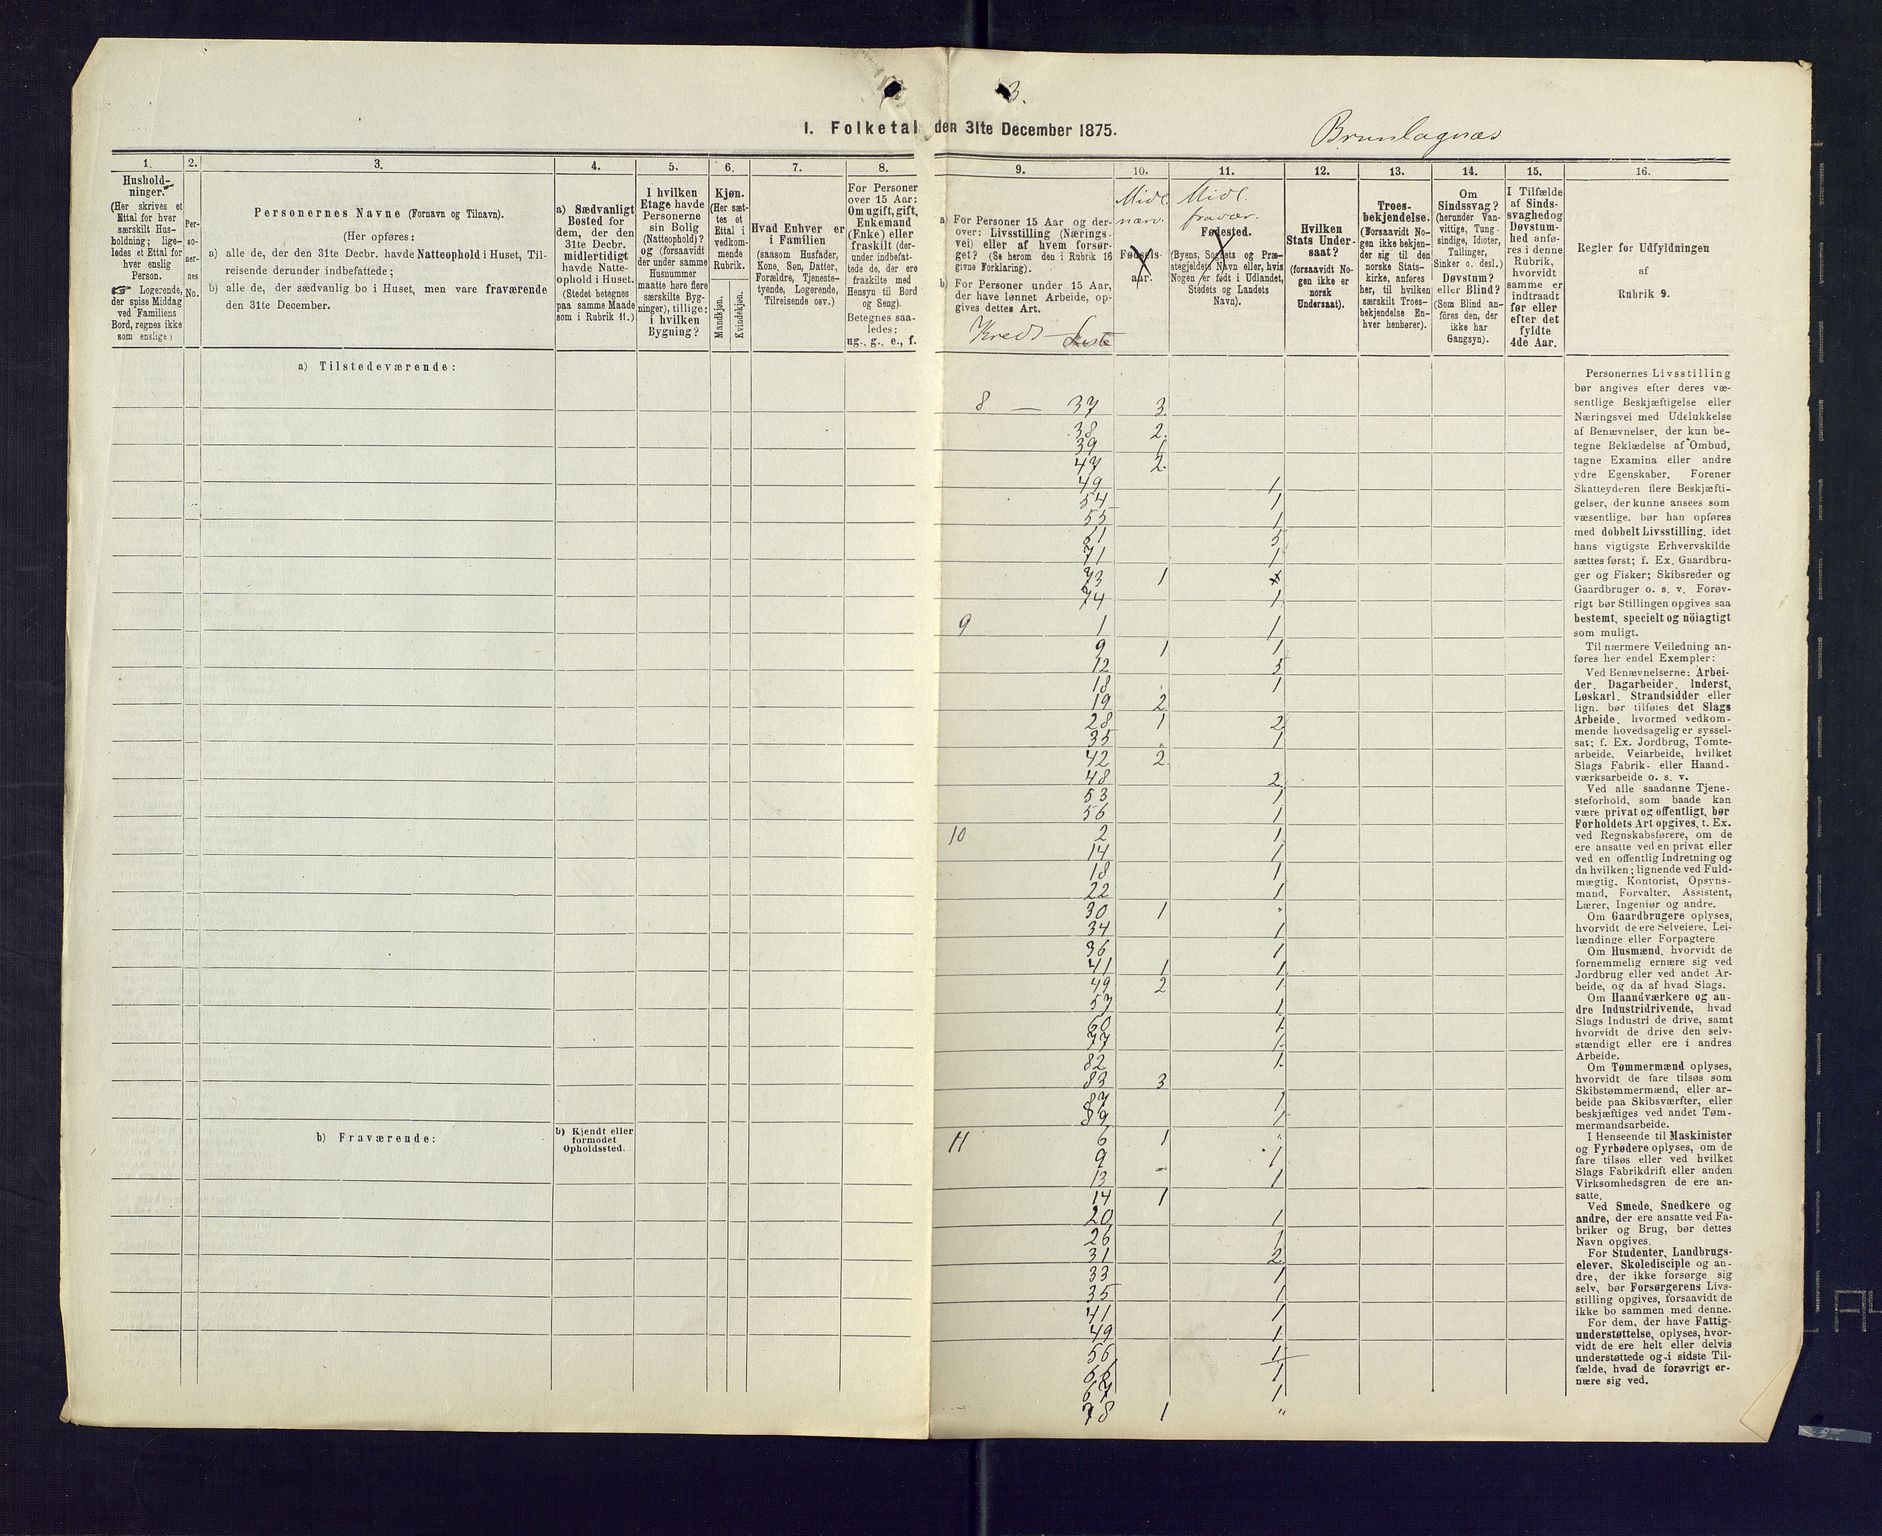 3.
I. Folketal den 31te December 1875.
Brunlagnæs
1.
Hushold-
ninger.
(Her skrives et
Ettal for hver
særskilt Hus-
holdning; lige-
ledes et Ettal for
hver enslig
Person.
☞ Logerende,
der spise Middag
ved Familiens
Bord, regnes ikke
som enslige)
2.
Per-
so-
ner-
nes
No.
3.
Personernes Navne (Fornavn og Tilnavn).
(Her opføres:
a) alle de, der den 31te Decbr. havde Natteophold i Huset, Til-
reisende derunder indbefattede;
b) alle de, der sædvanlig bo i Huset, men vare fraværende
den 31te December.
4.
a) Sædvanligt
Bosted for
dem, der den
31te Decbr.
midlertidigt
havde Natte-
ophold i Huset.
(Stedet betegnes
paa samme Maade
som i Rubrik 11.)
5.
I hvilken
Etage havde
Personerne
sin Bolig
(Natteophold)?
og (forsaavidt
der under samme
Husnummer
maatte høre flere
særskilte Byg-
ninger), tillige:
i hvilken
Bygning?
6.
Kjøn.
(Her sæt-
tes et
Ettal i
vedkom-
mende
Rubrik.
Mandkjøn.
Kvindekjøn.
7.
Hvad Enhver er
i Familien
(saasom Husfader,
Kone, Søn, Datter,
Forældre, Tjeneste-
tyende, Logerende,
Tilreisende osv.)
8.
For Personer
over 15 Aar:
Om ugift, gift,
Enkemand
(Enke) eller
fraskilt (der-
under indbefat-
tede de, der ere
fraskilte med
Hensyn til Bord
og Seng).
Betegnes saa-
ledes:
ug., g., e., f.
9.
a) For Personer 15 Aar og der-
over: Livsstilling (Nærings-
vei) eller af hvem forsør-
get? (Se herom den i Rubrik 16
givne Forklaring).
b) For Personer under 15 Aar,
der have lønnet Arbeide, op-
gives dettes Art.
Kreds - Liste
10.
Midl.
nærv.
Fødsels-
aar.
11.
Midl.
fravær.
Fødested.
(Byens, Sognets og Præ-
stegjeldets Navn eller, hvis
Nogen er født i Udlandet,
Stedets og Landets
Navn).
12.
Hvilken
Stats Under-
saat?
(forsaavidt No-
gen ikke er
norsk
Undersaat).
13.
Troes-
bekjendelse.
(Forsaavidt No-
gen ikke bekjen-
der sig til den
norske Stats-
kirke, anføres
her, til hvilken
særskilt Troes-
bekjendelse En-
hver henhører).
14.
Om
Sindssvag?
(herunder Van-
vittige, Tung-
sindige, Idioter,
Tullinger,
Sinker o. desl.)
Døvstum?
eller Blind?
(Som Blind an-
føres den, der
ikke har
Gangsyn).
15.
I Tilfælde
af Sinds-
svaghed og
Døvstum-
hed anfø-
res i denne
Rubrik,
hvorvidt
samme er
indtraadt
før eller
efter det
fyldte
4de Aar.
16.
Regler for Udfyldningen
af
Rubrik 9.
a) Tilstedeværende:
8 — 37 3
38 2.
39 1
47 2.
49 1
54 1
55 1
61 5
71 1
73 1
74 1
9 1 1
9 1 1
12 3
18 1
19 2
28 1 2
35 1
42 2
48 2
53 1
56 1
10 2 1
14 1
18 1
22 1
30 1 "
34 1
36 1
41 1 1
49 2 1
57 1
60 1
77 1
82 1
83 3
87 1
89 1
b) Fraværende:
b) Kjendt eller
formodet
Opholdssted.
11 6 1 "
9 1
13 – 1
14 1
20 1
26 1
31 2
33 1
35 1
41 1
49 1
56 1
66 1
67 1
78 1 "
Personernes Livsstilling
bør angives efter deres væ-
sentlige Beskjæftigelse eller
Næringsvei med Udelukkelse
af Benævnelser, der kun be-
tegne Beklædelse af Ombud,
tagne Examina eller andre
ydre Egenskaber. Forener
Skatteyderen flere Beskjæfti-
gelser, der kunne ansees som
væsentlige, bør han opføres
med dobbelt Livsstilling, idet
hans vigtigste Erhvervskilde
sættes først; f. Ex. Gaardbru-
ger og Fisker; Skibsreder og
Gaardbruger o. s. v. Forøv-
rigt bør Stillingen opgives saa
bestemt, specielt og nöiagtigt
som muligt.
Til nærmere Veiledning an-
føres her endel Exempler:
Ved Benævnelserne: Arbei-
der, Dagarbeider, Inderst,
Løskarl, Strandsidder eller
lign. bør tilføies det Slags
Arbeide, hvormed vedkom-
mende hovedsagelig er syssel-
sat; f. Ex. Jordbrug, Tomte-
arbeide, Veiarbeide, hvilket
Slags Fabrik- eller Haand-
værksarbeide o. s. v.
Ved alle saadanne Tjene-
steforhold, som baade kan
være privat og offentligt, bør
Forholdets Art opgives, t. Ex.
ved Regnskabsførere, om de
ere ansatte ved en privat eller
ved en offentlig Indretning og
da hvilken; lignende ved Fuld-
mægtig, Kontorist, Opsyns-
mand, Forvalter, Assistent,
Lærer, Ingeniør og andre.
Om Gaardbrugere oplyses,
hvorvidt de ere Selveiere, Lei-
lændinge eller Forpagtere.
Om Husmænd, hvorvidt de
fornemmelig ernære sig ved
Jordbrug eller ved andet Ar-
beide, og da af hvad Slags.
Om Haandværkere og an-
dre Industridrivende, hvad
Slags Industri de drive, samt
hvorvidt de drive den selv-
stændigt eller ere i andres
Arbeide.
Om Tømmermænd oplyses,
hvorvidt de fare tilsøs som
Skibstømmermænd, eller ar-
beide paa Skibsværfter, eller
beskjæftiges ved andet Tøm-
mermandsarbeide.
I Henseende til Maskinister
og Fyrbødere oplyses, om de
fare tilsøs eller ved hvilket
Slags Fabrikdrift eller anden
Virksomhedsgren de ere an-
satte.
Ved Smede, Snedkere og
andre, der ere ansatte ved Fa-
briker og Brug, bør dettes
Navn opgives.
For Studenter, Landbrugs-
elever, Skoledisciple og an-
dre, der ikke forsørge sig
selv, bør Forsørgerens Livs-
stilling opgives, forsaavidt de
ikke bo sammen med denne.
For dem, der have Fattig-
understøttelse, oplyses, hvor-
vidt de ere helt eller delvis
understøttede og i sidste Til-
fælde, hvad de forøvrigt er-
nære sig ved.